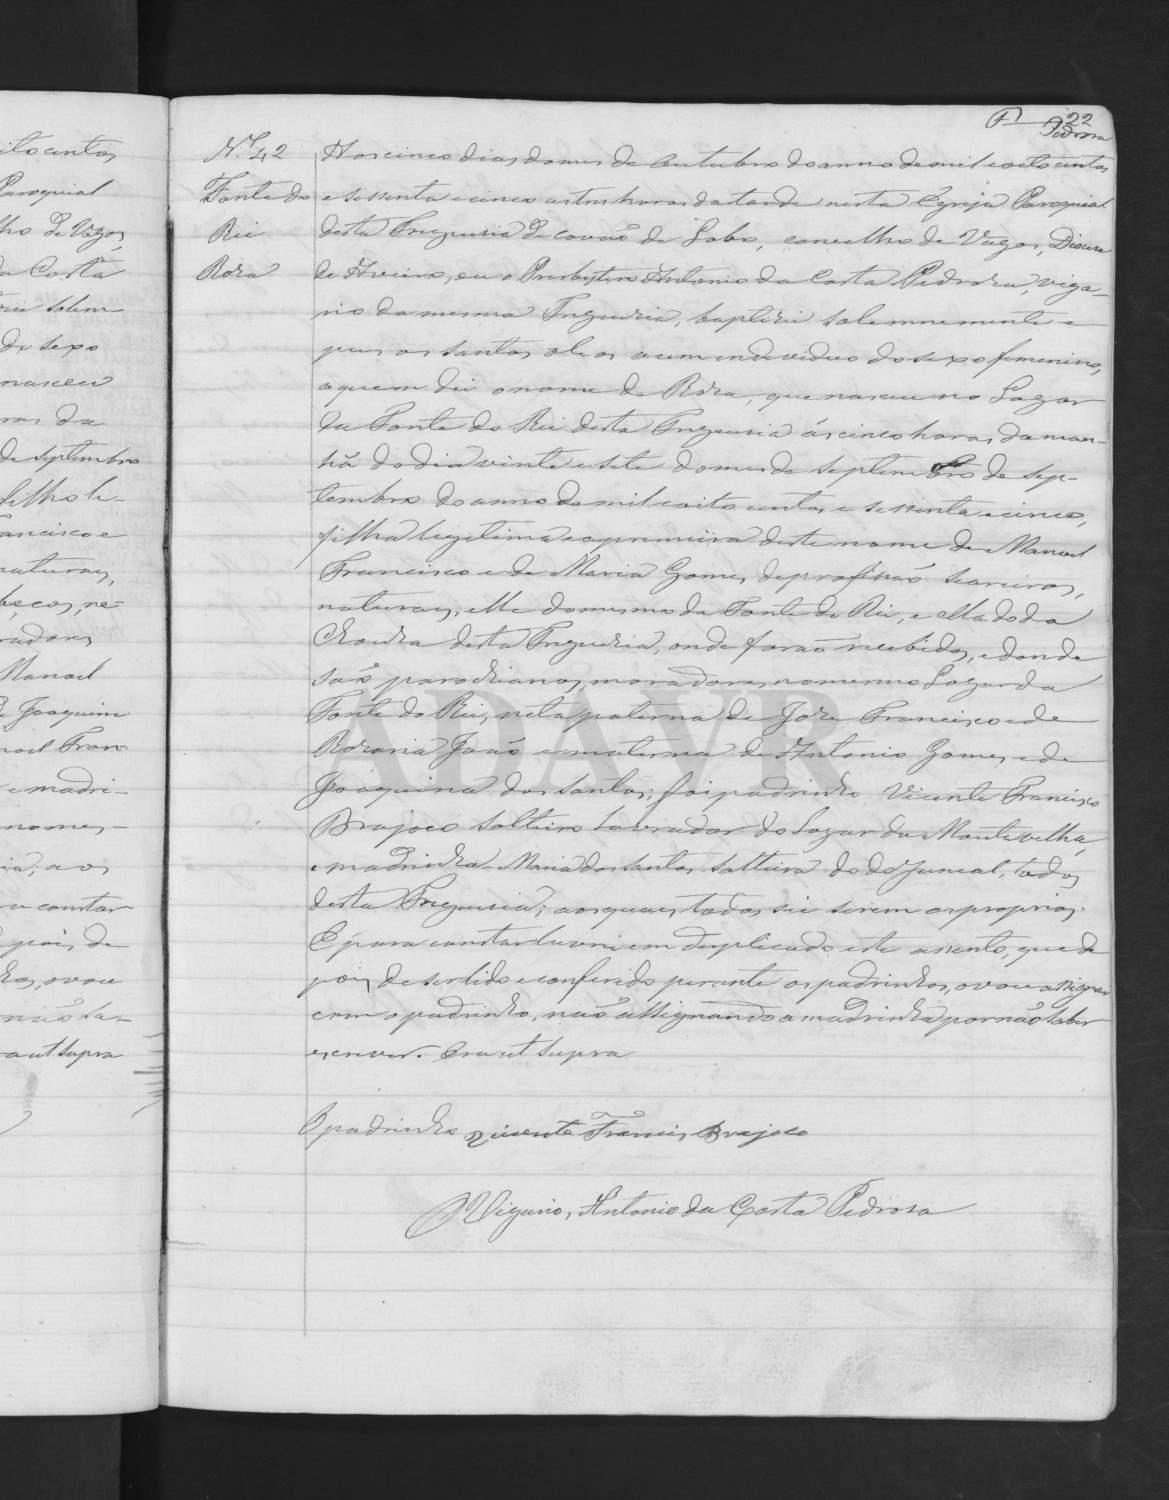 22
Pedrosa
N.º 42
Fonte do
Rei
Roza
Aos cinco dias do mes de Outubro do anno de mil e oito centos
e sessenta e cinco as tres horas da tarde nesta Egreja Paroquial
desta Freguesia de Covão de Lobo, concelho de Vagos, Diocese
de Aveiro, eu o Presbytero Antonio da Costa Pedroza, viga-
rio da mesma Freguesia, baptizei solemnemente e
pus os santos oleos a um individuo do sexo femenino,
a quem dei o nome de Roza, que nasceu no Logar
da Fonte do Rei desta Freguesia ás cinco horas da man-
hã do dia vinte e sete do mes de septembro de sep-
tembro do anno de mil e oito centos e sessenta e cinco,
filha legitima e a primeira deste nome de Manoel
Francisco e de Maria Gomes, de profissão seareiros,
naturaes, elle do mesmo da Fonte do Rei, e ella do da
desta Freguezia, onde forão recebidos, e donde
são parochianos, moradores no mesmo Logar da
Fonte do Rei, neta paterna de Joze Francisco e de
Rozaria João e materna de Antonio Gomes e de
Joaquina dos Santos; foi padrinho Vicente Francisco
Brajoco solteiro Lavrador do Logar da Monte velha,
e madrinha Maria dos Santos solteira do do Juncal, todos
desta Freguesia; aos quaes todos sei serem os proprios.
E para constar lavrei em duplicado este assento, que de
pois de ser lido e conferido perante os padrinhos, o vou assignar
com o padrinho, não assignando a madrinha por não saber
escrever. Era ut supra
O padrinho Vicente Francis Brajoco
O Vigario, Antonio da Costa Pedrosa
ito centos
Paroquial
lho de Vagos,
da Costa
zei solem-
do sexo
nasceu
ras da
de septembro
filho le-
ancisco e
naturaes,
beços, re-
radores
Manoel
de Joaquim
noel Fran-
e madri-
nomes-
ia; aos
a constar
pois de
hos, o vou
não sa-
a ut supra
ADAVR